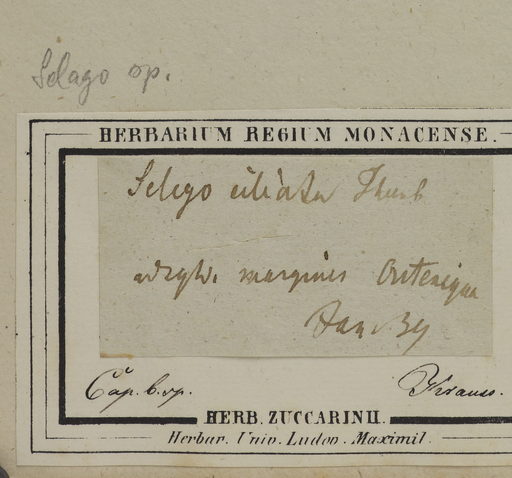 Selago sp.
HERBARIUM REGIUM MONACENSE.
Selago ciliata Thunb
margines Outeniqua
Jan. 39
Cap. b. sp.
Krauss.
HERB. ZUCCARINII.
Herbar. Univ. Ludov. Maximil.